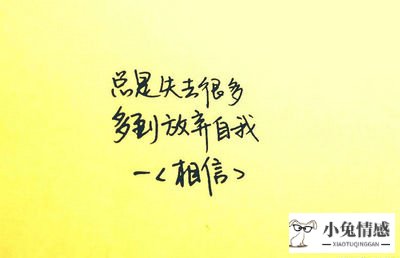 总是失去很多
多到放弃自我
—<相信>
小兔情感
XIAOTUQINGGAN